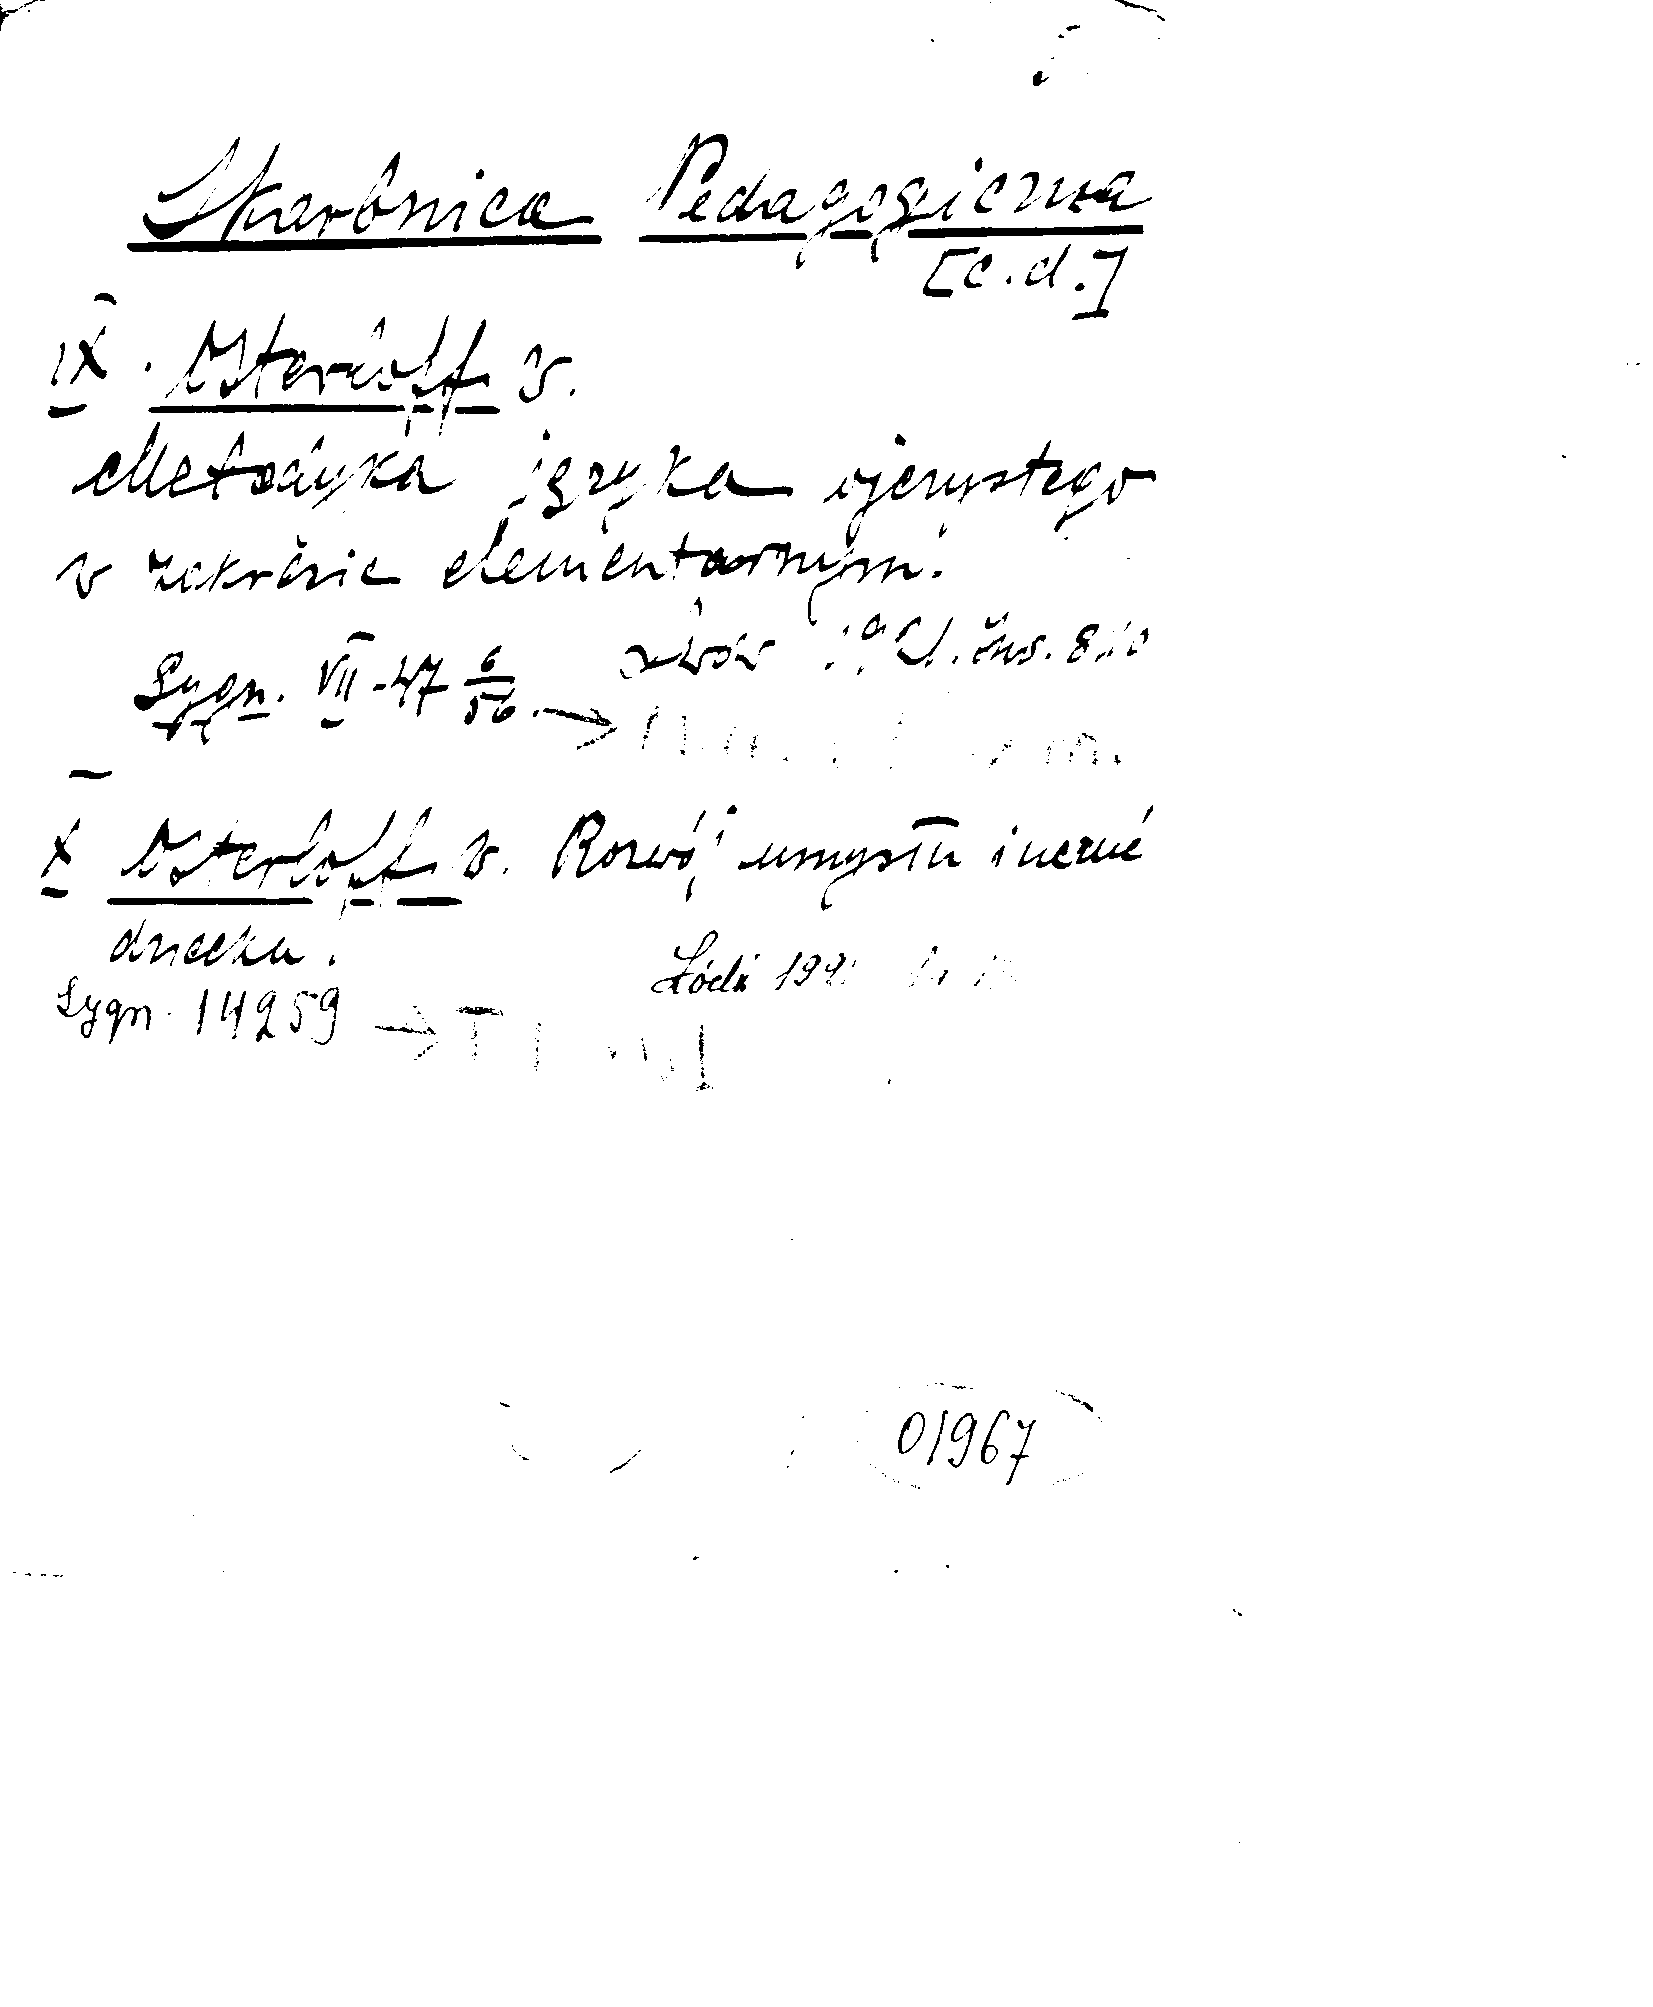 Skarbnica Pedagogiczna
[c.d.]
IX. Osterloff W.
Metodyka języka ojczystego
w zakresie elementarnym.
Lwów
Sygn. VII-47 6/56 →
X Osterloff W. Rozwój umysłu i uczuć
dziecka.
Łódź
Sygn. 14259 →
01967